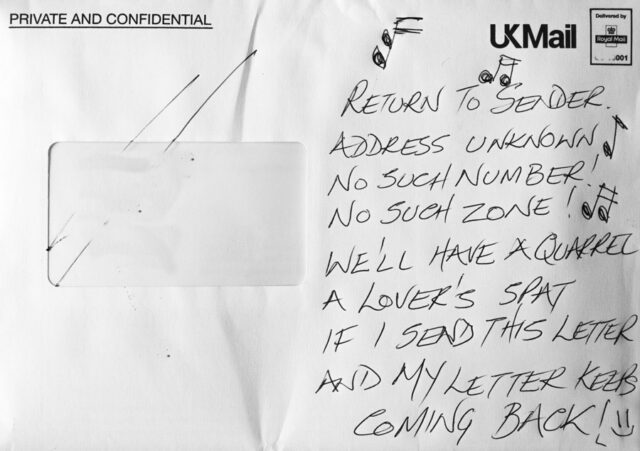 PRIVATE AND CONFIDENTIAL
UKMail
Delivered by
Royal Mail
001
RETURN TO SENDER.
ADDRESS UNKNOWN
NO SUCH NUMBER!
NO SUCH ZONE!
WE'LL HAVE A QUARREL
A LOVER'S SPAT
IF I SEND THIS LETTER
AND MY LETTER KEEPS
COMING BACK!